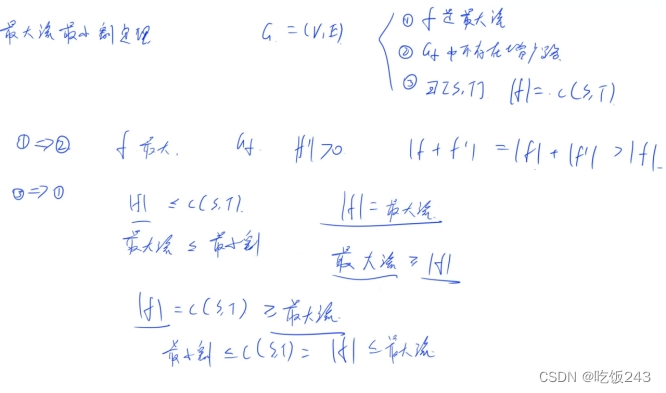 最大流最小割定理 G = (V, E) ① f是最大流
② Gf中不存在增广路
③ ∃[S,T] |f| = c(S,T)
①⇒② f 最大. Gf. |f'|>0 |f+f'| = |f|+|f'| > |f|.
③⇒① |f| ≤ c(S,T). |f| = 最大流.
最大流 ≤ 最小割
最大流 ≥ |f|
|f| = c(S,T) ≥ 最大流.
最小割 ≤ c(S,T) = |f| ≤ 最大流
CSDN @吃饭243